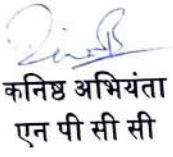 कनिष्ठ अभियंता
एन पी सी सी